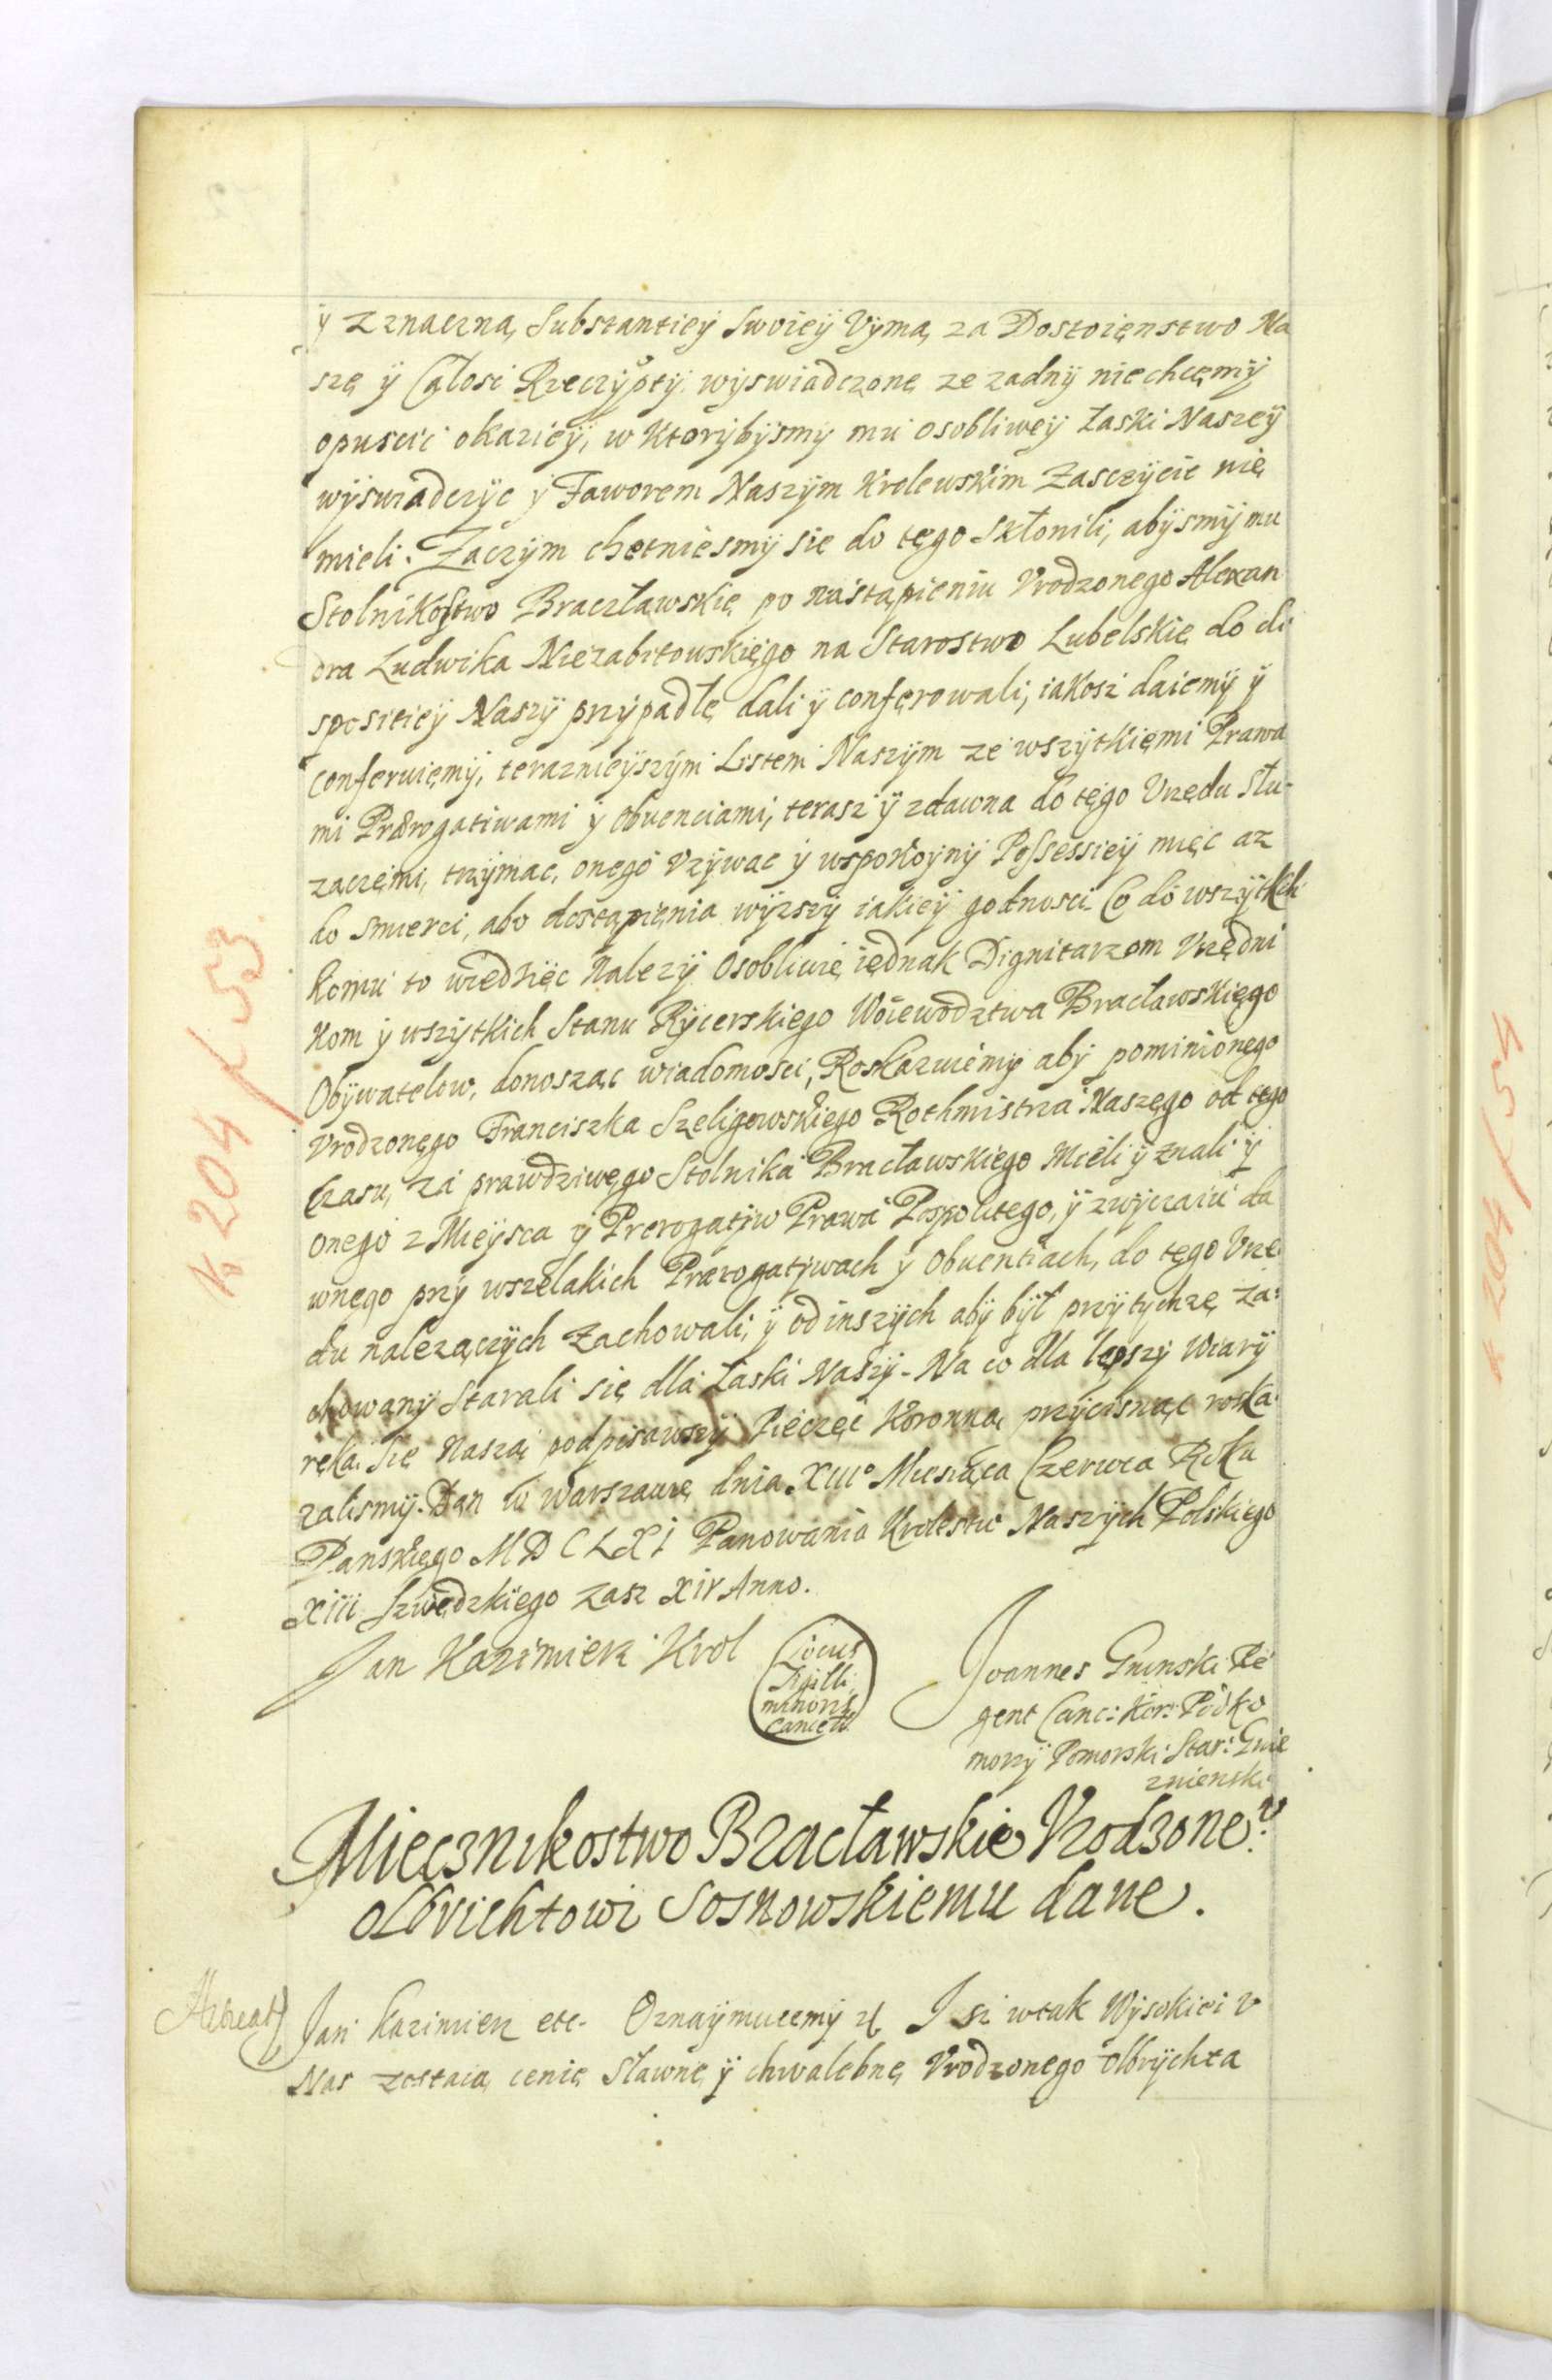 y z znaczną Substantiey Swoiey Vymą za Dostoięnstwo Na
szę y Całosi Rzeczyptý wyswiadczonę ze zadny niechcęmy
opuscic okaziey, w Ktorybysmy mu osobliwey łaski Naszey
wyswiadczyc y Faworem Naszym Krolewskim Zasczycic nię
mieli. Zaczym chętniesmy się do tęgo Skłonili, abysmy mu
Stolnikostwo Braczławskię po nastąpieniu Vrodzonego Alexan
dra Ludwika Niezabitowskięgo na Starostwo Lubelskię do di
spositiey Naszy przypadłę dali y conferowali, iakosz daięmy y
conferuięmy, teraznieyszym Listem Naszym ze wszytkięmi Prawa
mi Prærogatiwami y Obuenciami, terasz y zdawna do tęgo Vrzędu Słu-
zączęmi, trzymac, onego Vzywac y wspokoyny Possessiey mięc az
do smierci, abo dostąpięnia wyzszy iakiey godnosci. Co do wszytkich
komu to wiedzięc nalezy Osobliwię iędnak Dignitarzom Vrzędni
kom y wszytkich Stanu Rycerskiego Woiewodztwa Bracławskięgo
Obywatelow, donosząc wiadomosci, Roskazuięmy aby pominionego
Vrodzonęgo Franciszka Szeligowskięgo Rothmistrza Naszęgo od tęgo
Czasu, za prawdziwęgo Stolnika Bracławskiego Mięli y znali y
onego z Mieysca y Prerogatyw Prawa Pospolitego, y zwyczaiu da
wnego przy wszelakich Prærogatywach y Obuentiach, do tęgo Vrzę
du nalezączych Zachowali, y od inszych aby był przytychzę za:
chowany Starali się dla Łaski Naszy - Na co dla lepszy Wiary
ręką Się naszą podpisawszy Pieczęc Koronną przycisnąc roska
zalismy. Dan w Warszawię dnia XIII° Miesiąca Czerwca Roku
Panskięgo MDCLXI Panowania Krolestw Naszych Polskiego
XIII Szwędzkięgo Zasz XIV Anno.
Jan Kazimierz Krol
Locus
Sigilli
minoris
Cancell.
Joannes Gninski Re
gent Canc: Kor: Podko
morzy Pomorski Star: Gnie
znienski
Miecznikostwo Bracławskie Vrodzone.v
Olbrichtowi Sosnowskiemu dane.
Jan Kazimierz etc. Oznaymuiemy Isz wtak Wysokiei v
Nas zostaią cenię Sławnę y chwalebnę Vrodzonego Olbrychta
k 204 / 53